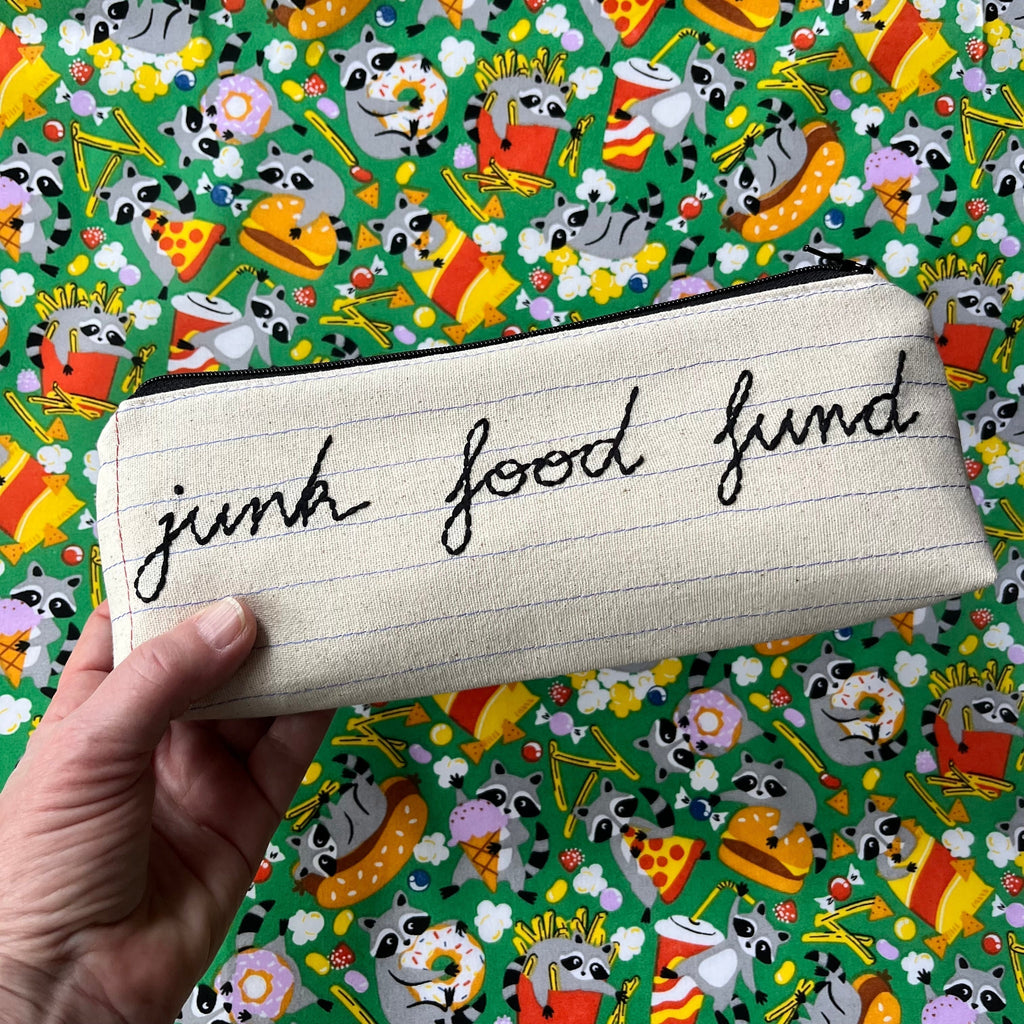 junk food fund